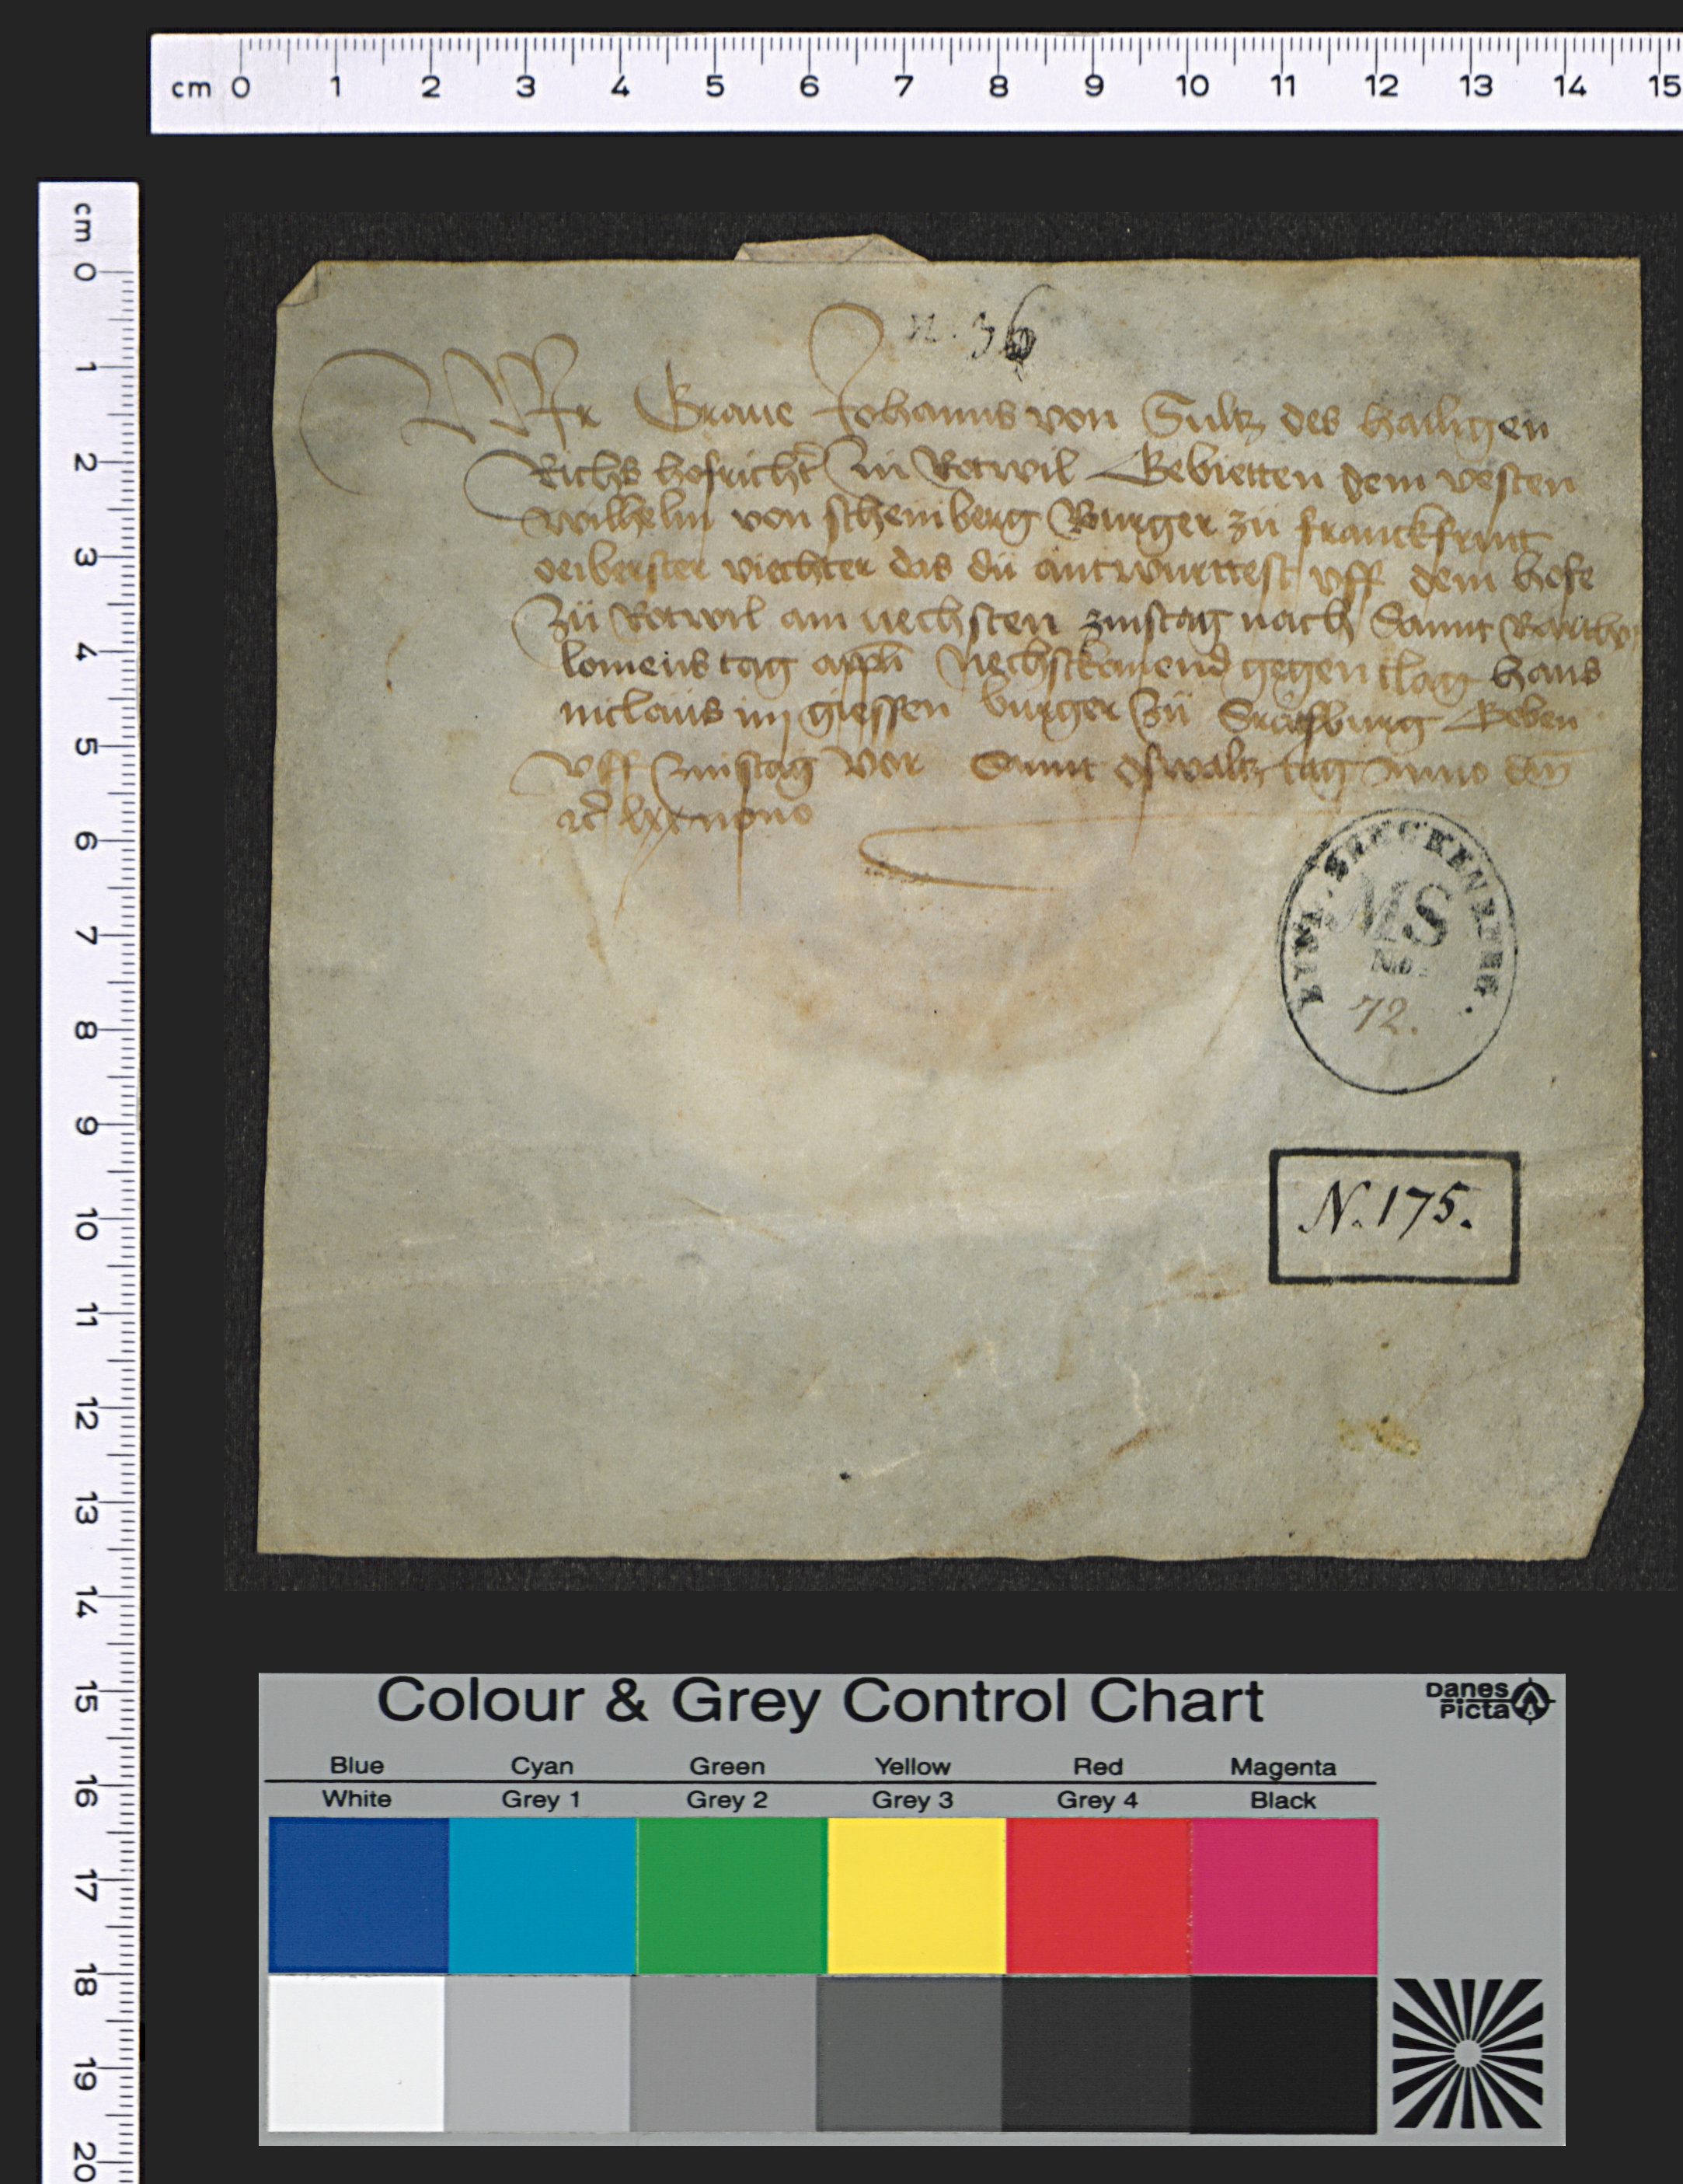 cm 0 1 2 3 4 5 6 7 8 9 10 11 12 13 14 15
cm 0 1 2 3 4 5 6 7 8 9 10 11 12 13 14 15 16 17 18 19 20
n. 36
Wir Graue Johanns von Sultz des hailigen
Richs hofricht̃ Zu Rotwil Gebietten dem vesten
Wilhelm von schemberg Burger zü franckfurt
das dü antwurttest vff dem hofe
Zü Rotwil am nechsten zinstag nach Sannt Bartho
lomeüs tag appli̅ Nechstkomend gegen clag hans
niclaüs im giessen burger Zü Straszburg Geben
Vff Zinstag Vor Sannt oswaltz tag Anno dn̅i
rc̃ lxx nono
BIBL. BRUCKENTHAL.
MS
No.
72.
N. 175.
Colour & Grey Control Chart
Danes
Picta
Blue Cyan Green Yellow Red Magenta
White Grey 1 Grey 2 Grey 3 Grey 4 Black